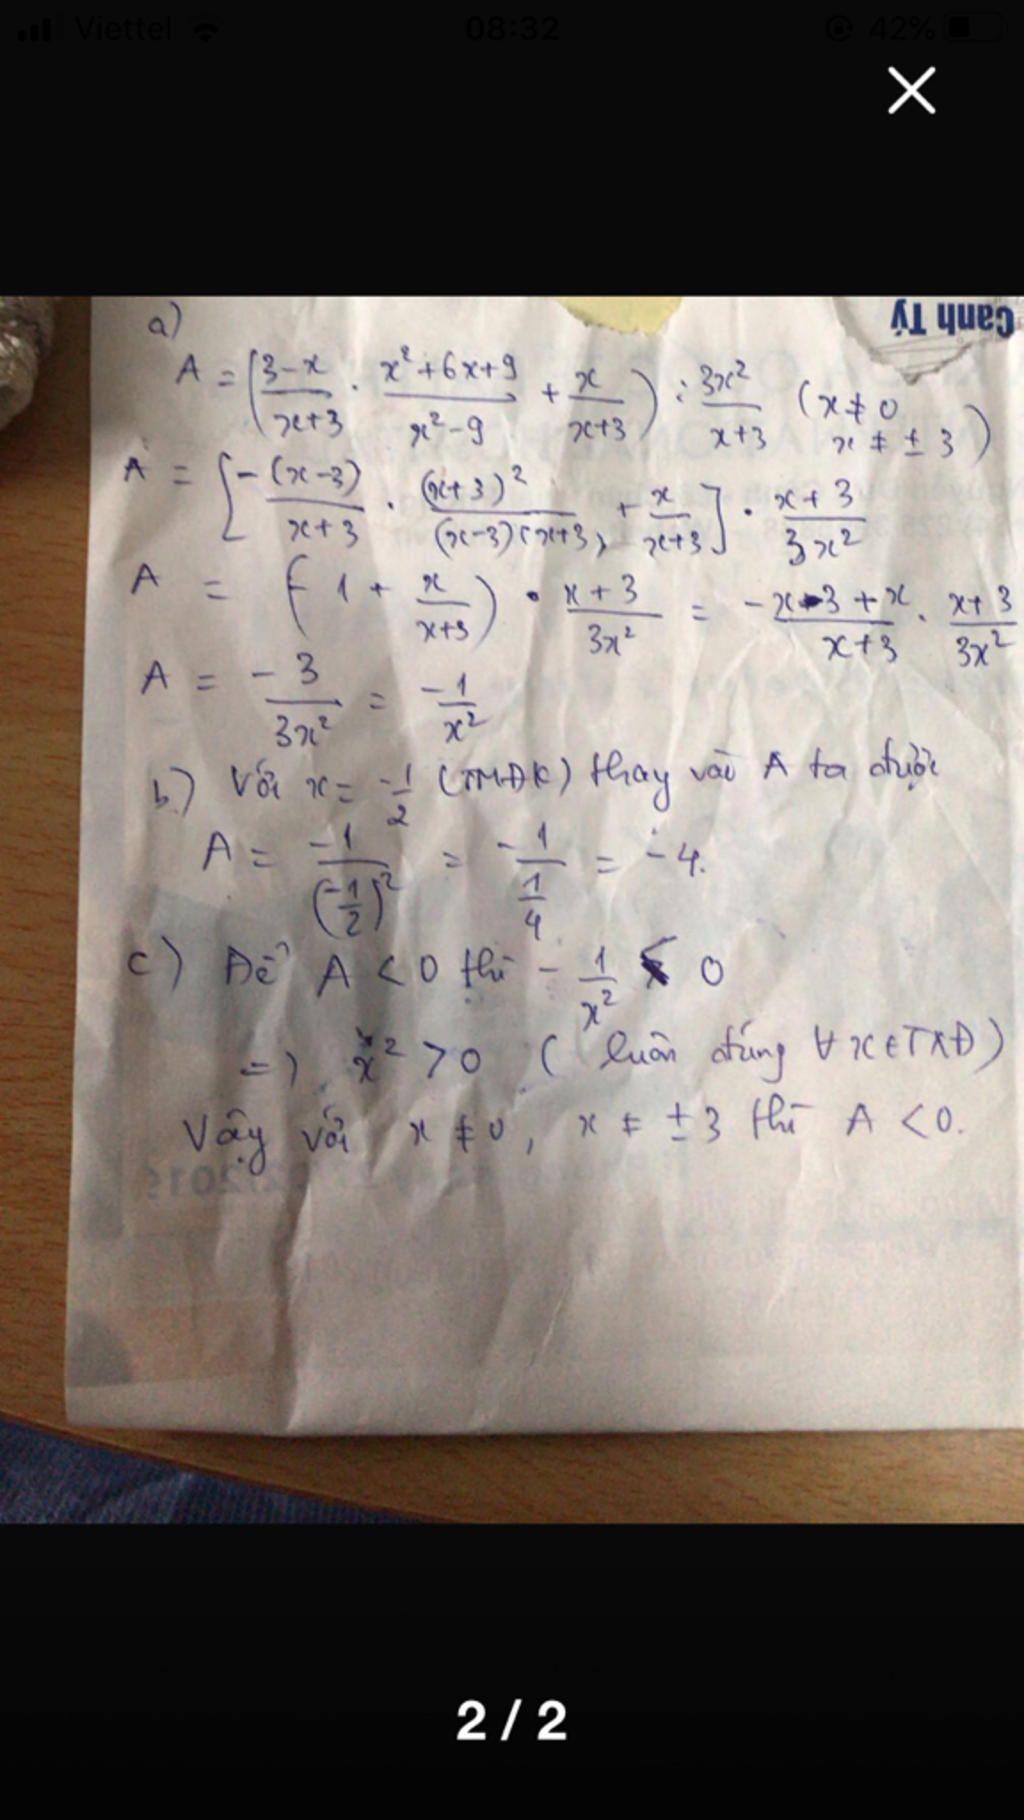 Viettel 08:32 42%
Canh Tý
a)
A = (3-x/x+3 . x²+6x+9/x²-9 + x/x+3) : 3x²/x+3 (x ≠ 0
x ≠ ± 3)
A = [-(x-3)/x+3 . (x+3)²/(x-3)(x+3) + x/x+3] . x+3/3x²
A = (-1 + x/x+3) . x+3/3x² = -x-3+x/x+3 . x+3/3x²
A = -3/3x² = -1/x²
b.) Với x = -1/2 (TMĐK) thay vào A ta được
A = -1/(-1/2)² = -1/1/4 = -4.
c) Để A < 0 thì -1/x² < 0
=) x² > 0 (luôn đúng ∀x∈TXĐ)
Vậy với x ≠ 0, x ≠ ± 3 thì A < 0.
2 / 2